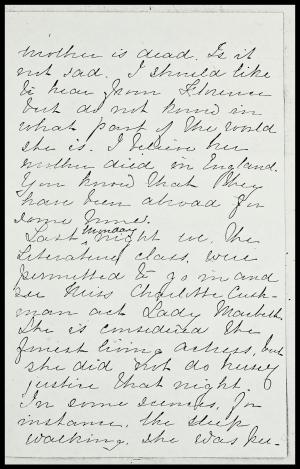 mother is dead. Is it
not sad. I should like
to hear from Florence
but do not know in
what part of the world
she is. I believe her
mother died in England.
You know that they
have been abroad for
some time.
Last Monday night we, the
Literature class, were
permitted to go in and
see Miss Charlotte Cush-
man act Lady Macbeth.
She is considered the
finest living actress, but
she did not do herself
justice that night.
In some scenes, for
instance, the sleep
walking, she was